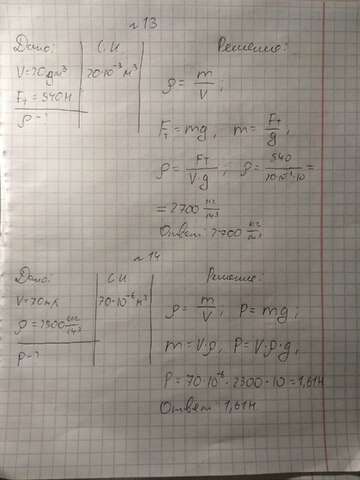 № 13
Дано:
V=20дм³
Fт = 540Н
ρ-?
С.И
20·10⁻³ м³
Решение:
ρ = m/V ;
Fт = mg, m = Fт/g ,
ρ = Fт/(V·g) ; ρ = 540/(20·10⁻³·10) =
= 2700 кг/м³
Ответ: 2700 кг/м³
№ 14
Дано:
V=70мл
ρ = 2300 кг/м³
P-?
С.И
70·10⁻⁶ м³
Решение:
ρ = m/V , P = mg ;
m = V·ρ, P = V·ρ·g ,
P = 70·10⁻⁶·2300·10 = 1,61Н
Ответ: 1,61Н